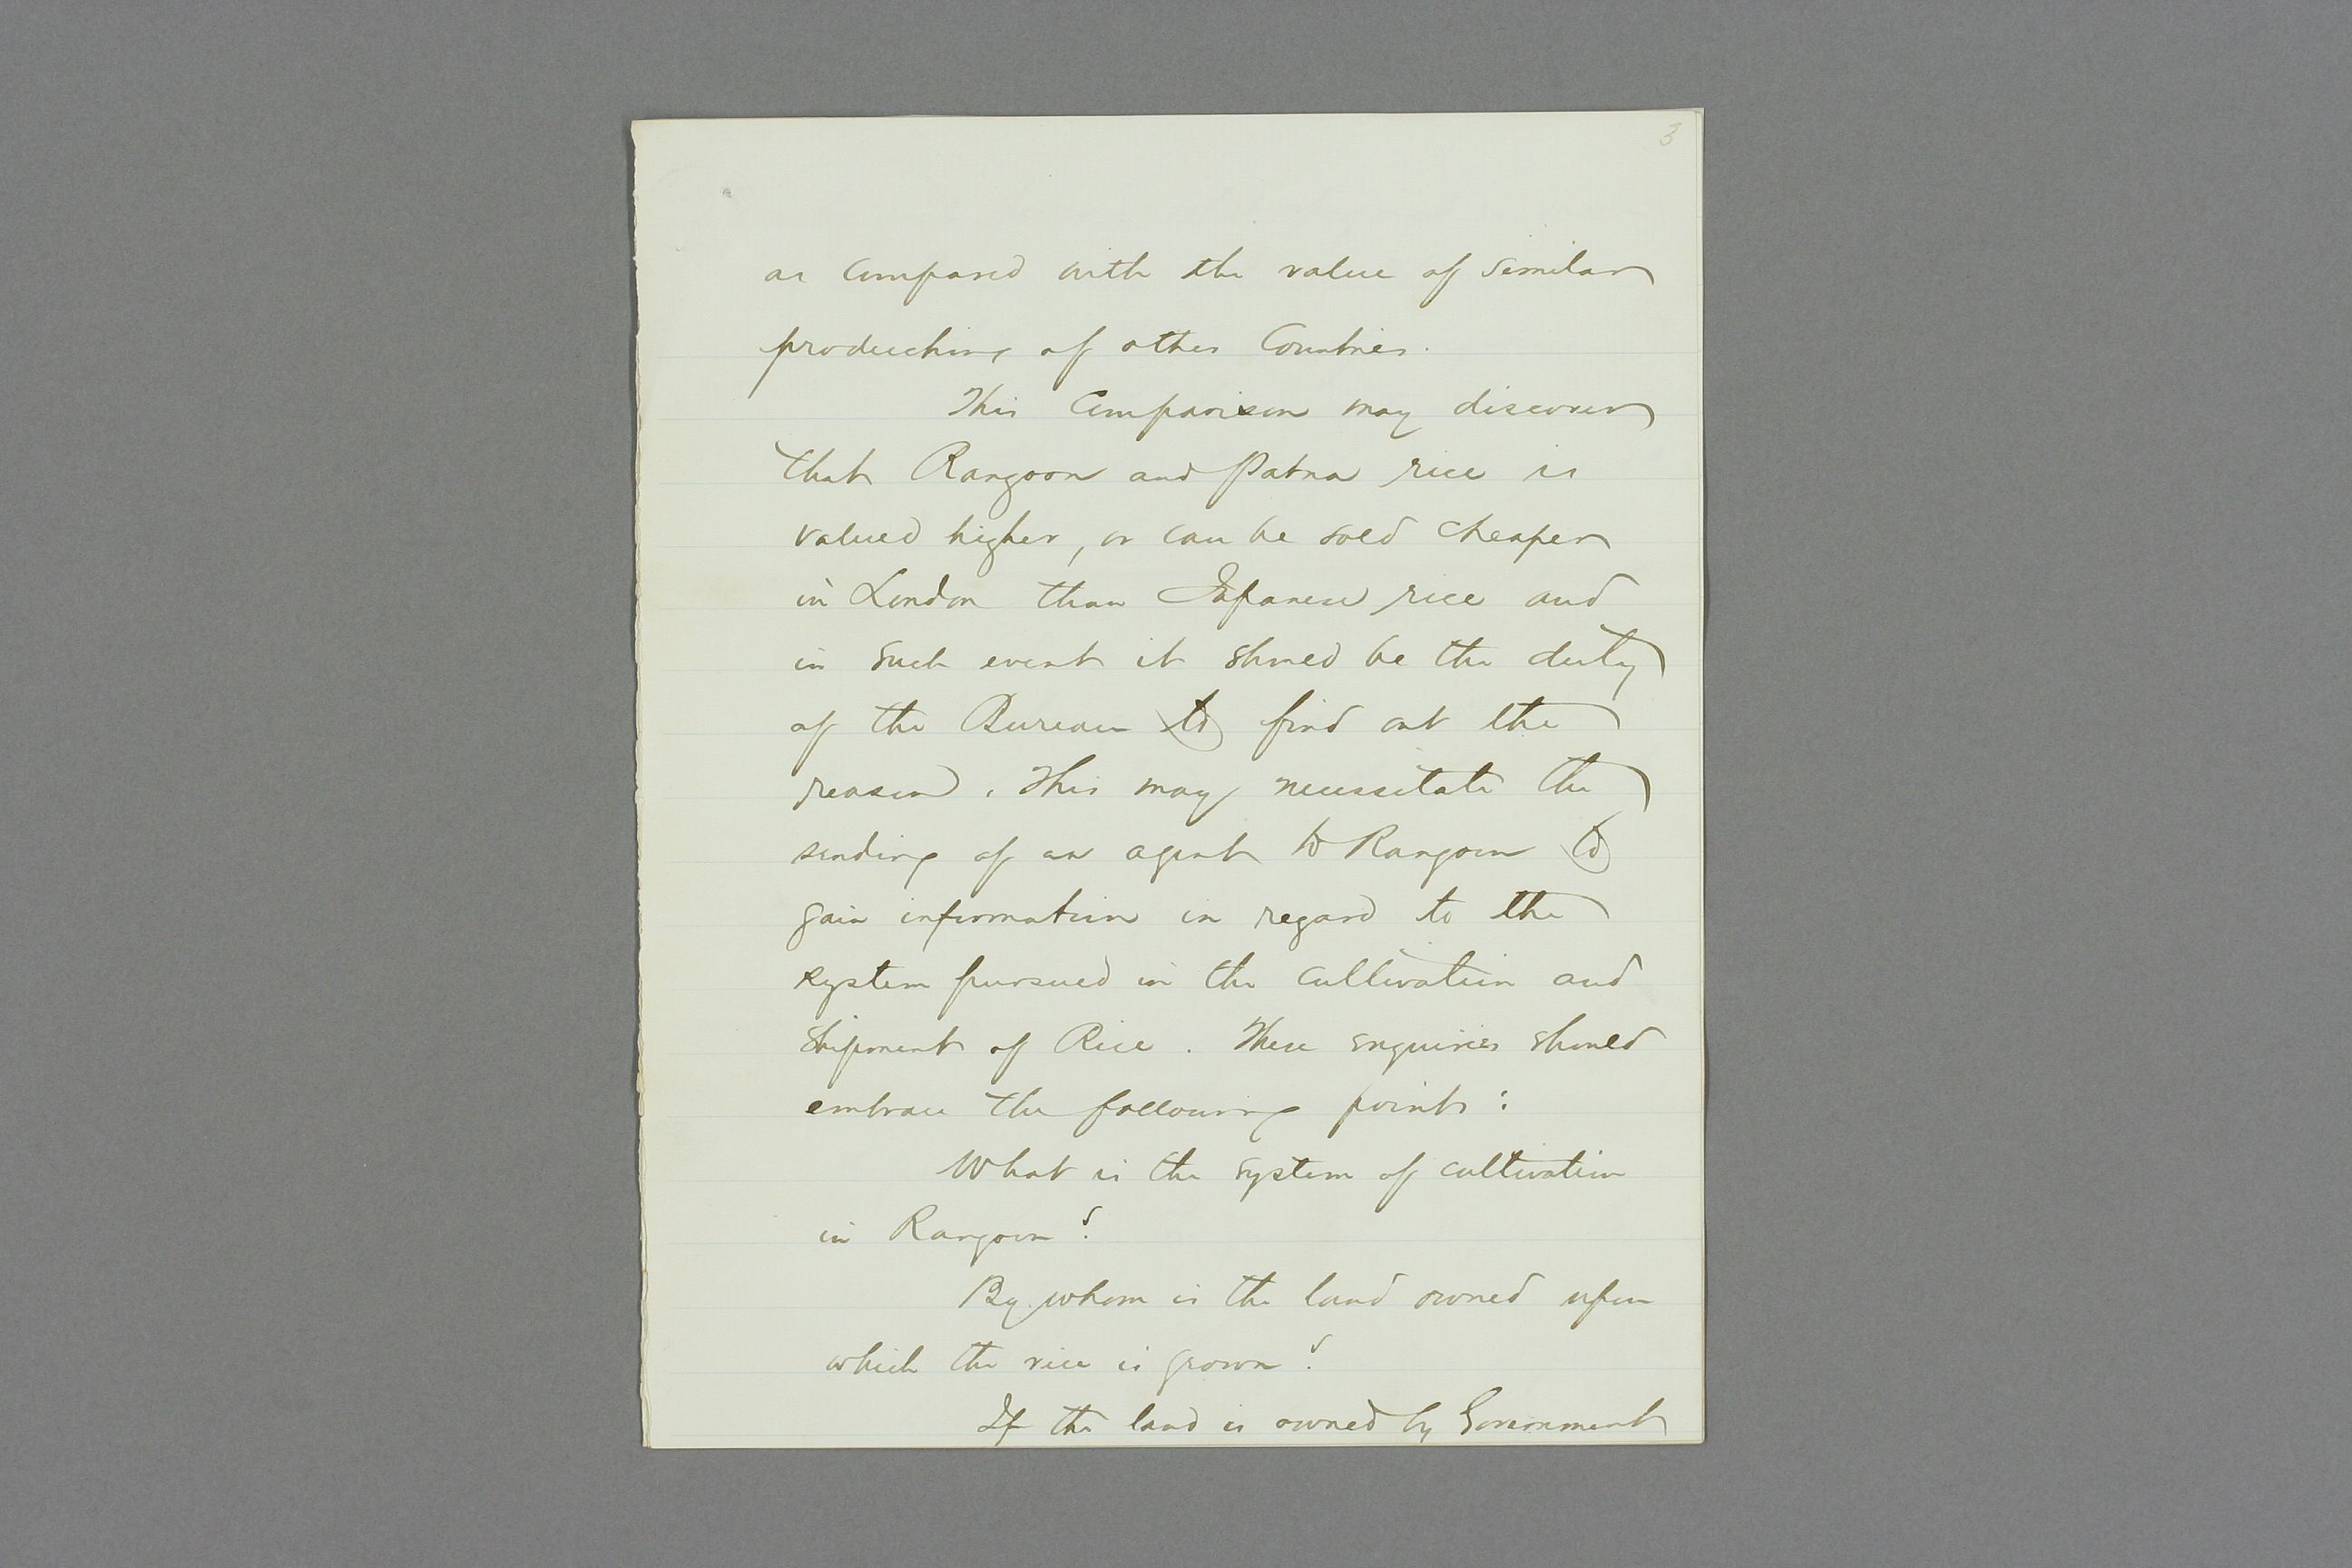 3
as compared with the value of similar
productions of other Countries.
This Comparison may discover
that Rangoon and Patna rice is
valued higher, or can be sold cheaper
in London than Japanese rice and
in such event it should be the duty
of the Bureau to find out the
reason. This may necessitate the
sending of an agent to Rangoon to
gain information in regard to the
system pursued in the cultivation and
Shipment of Rice. These enquiries should
embrace the following points:
What is the system of cultivation
in Rangoon?
By whom is the land owned upon
which the rice is grown?
If the land is owned by Government